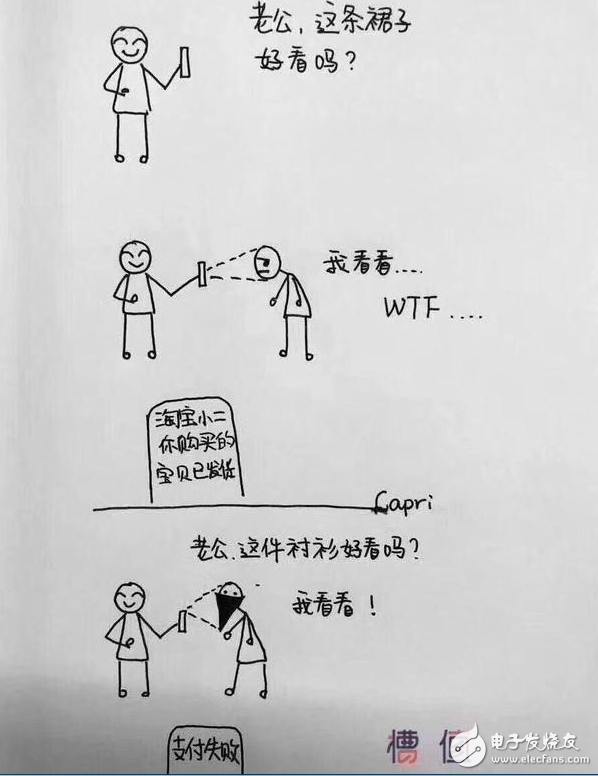 老公，这条裙子
好看吗？
我看看....
WTF....
淘宝小二
你购买的
宝贝已发货
Capri
老公.这件衬衫好看吗？
我看看！
支付失败
槽值
电子发烧友
www.elecfans.com